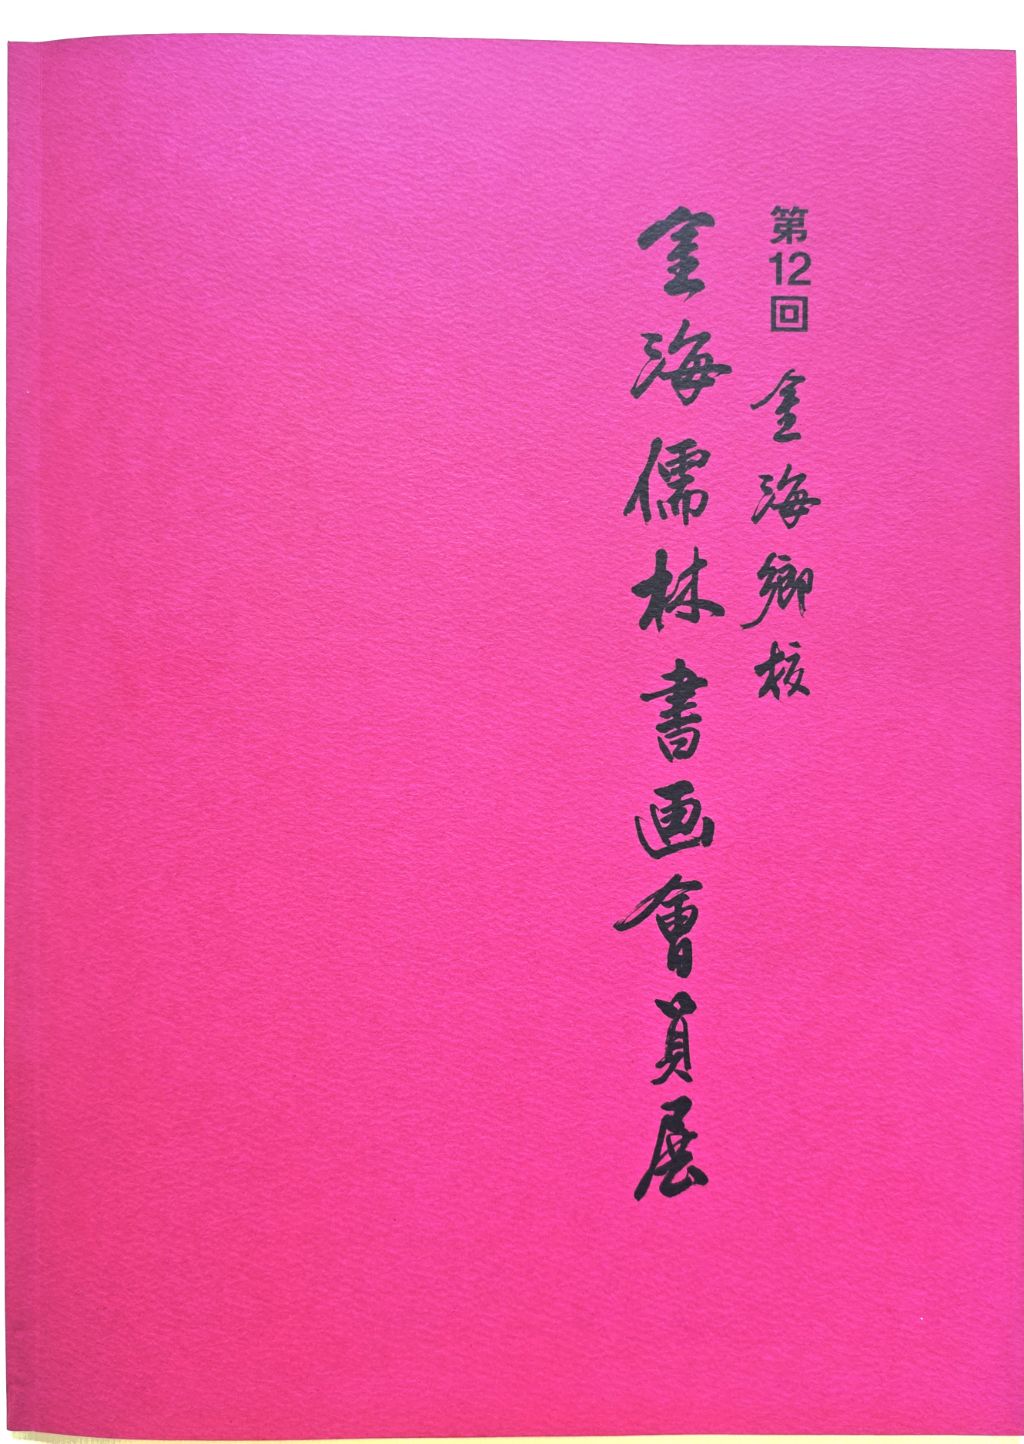 第12回 金海鄉校
金海儒林書画會員展